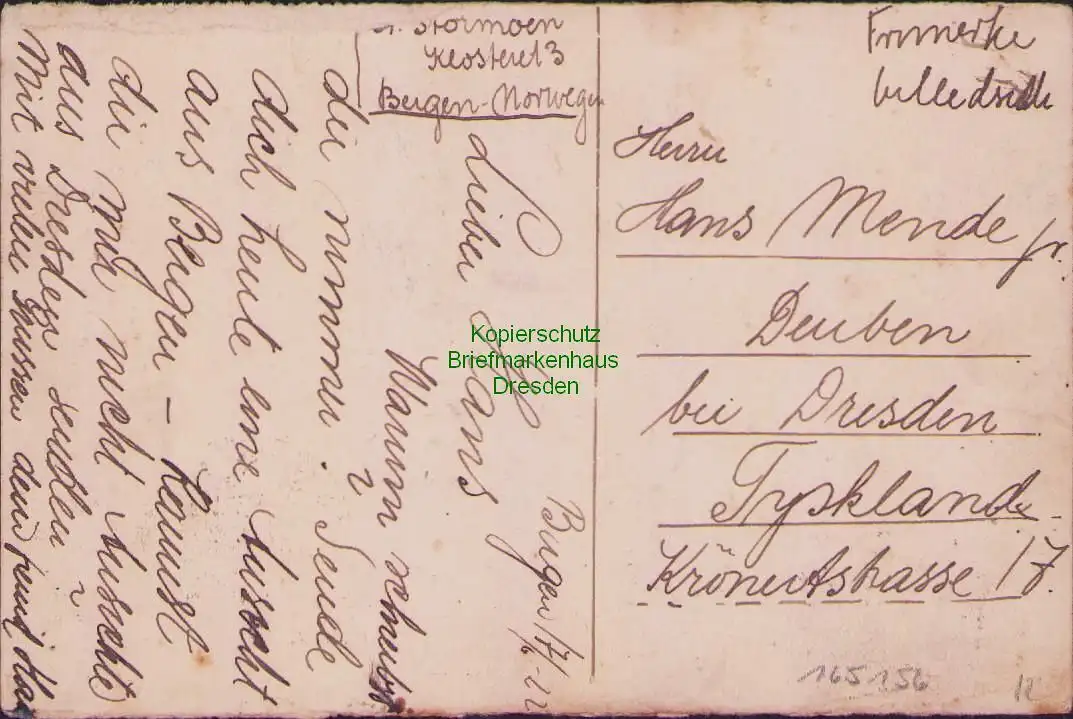 Stormoen
Klosteret 3
Bergen-Norwegen
Frimerke
billedside
Herrn
Hans Mende jr.
Deuben
bei Dresden
Tyskland.
Krönertstrasse 17.
Bergen 17/6-22
Lieber Hans
Warum schreibst
du nimmer? Sende
dich heute eine
aus Bergen — Kannst
du mir nicht
aus Dresden senden?
Mit vielen Grüssen dein Freund
165156
12
Kopierschutz
Briefmarkenhaus
Dresden